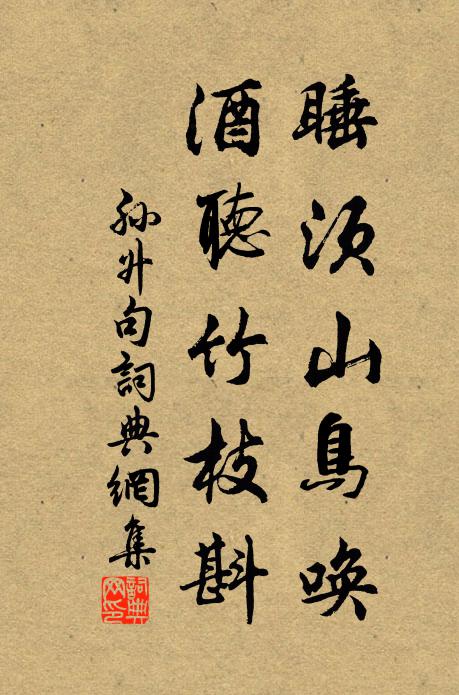 睡須山鳥喚
酒聽竹枝斟
孫升句詞典網集
詞典网印